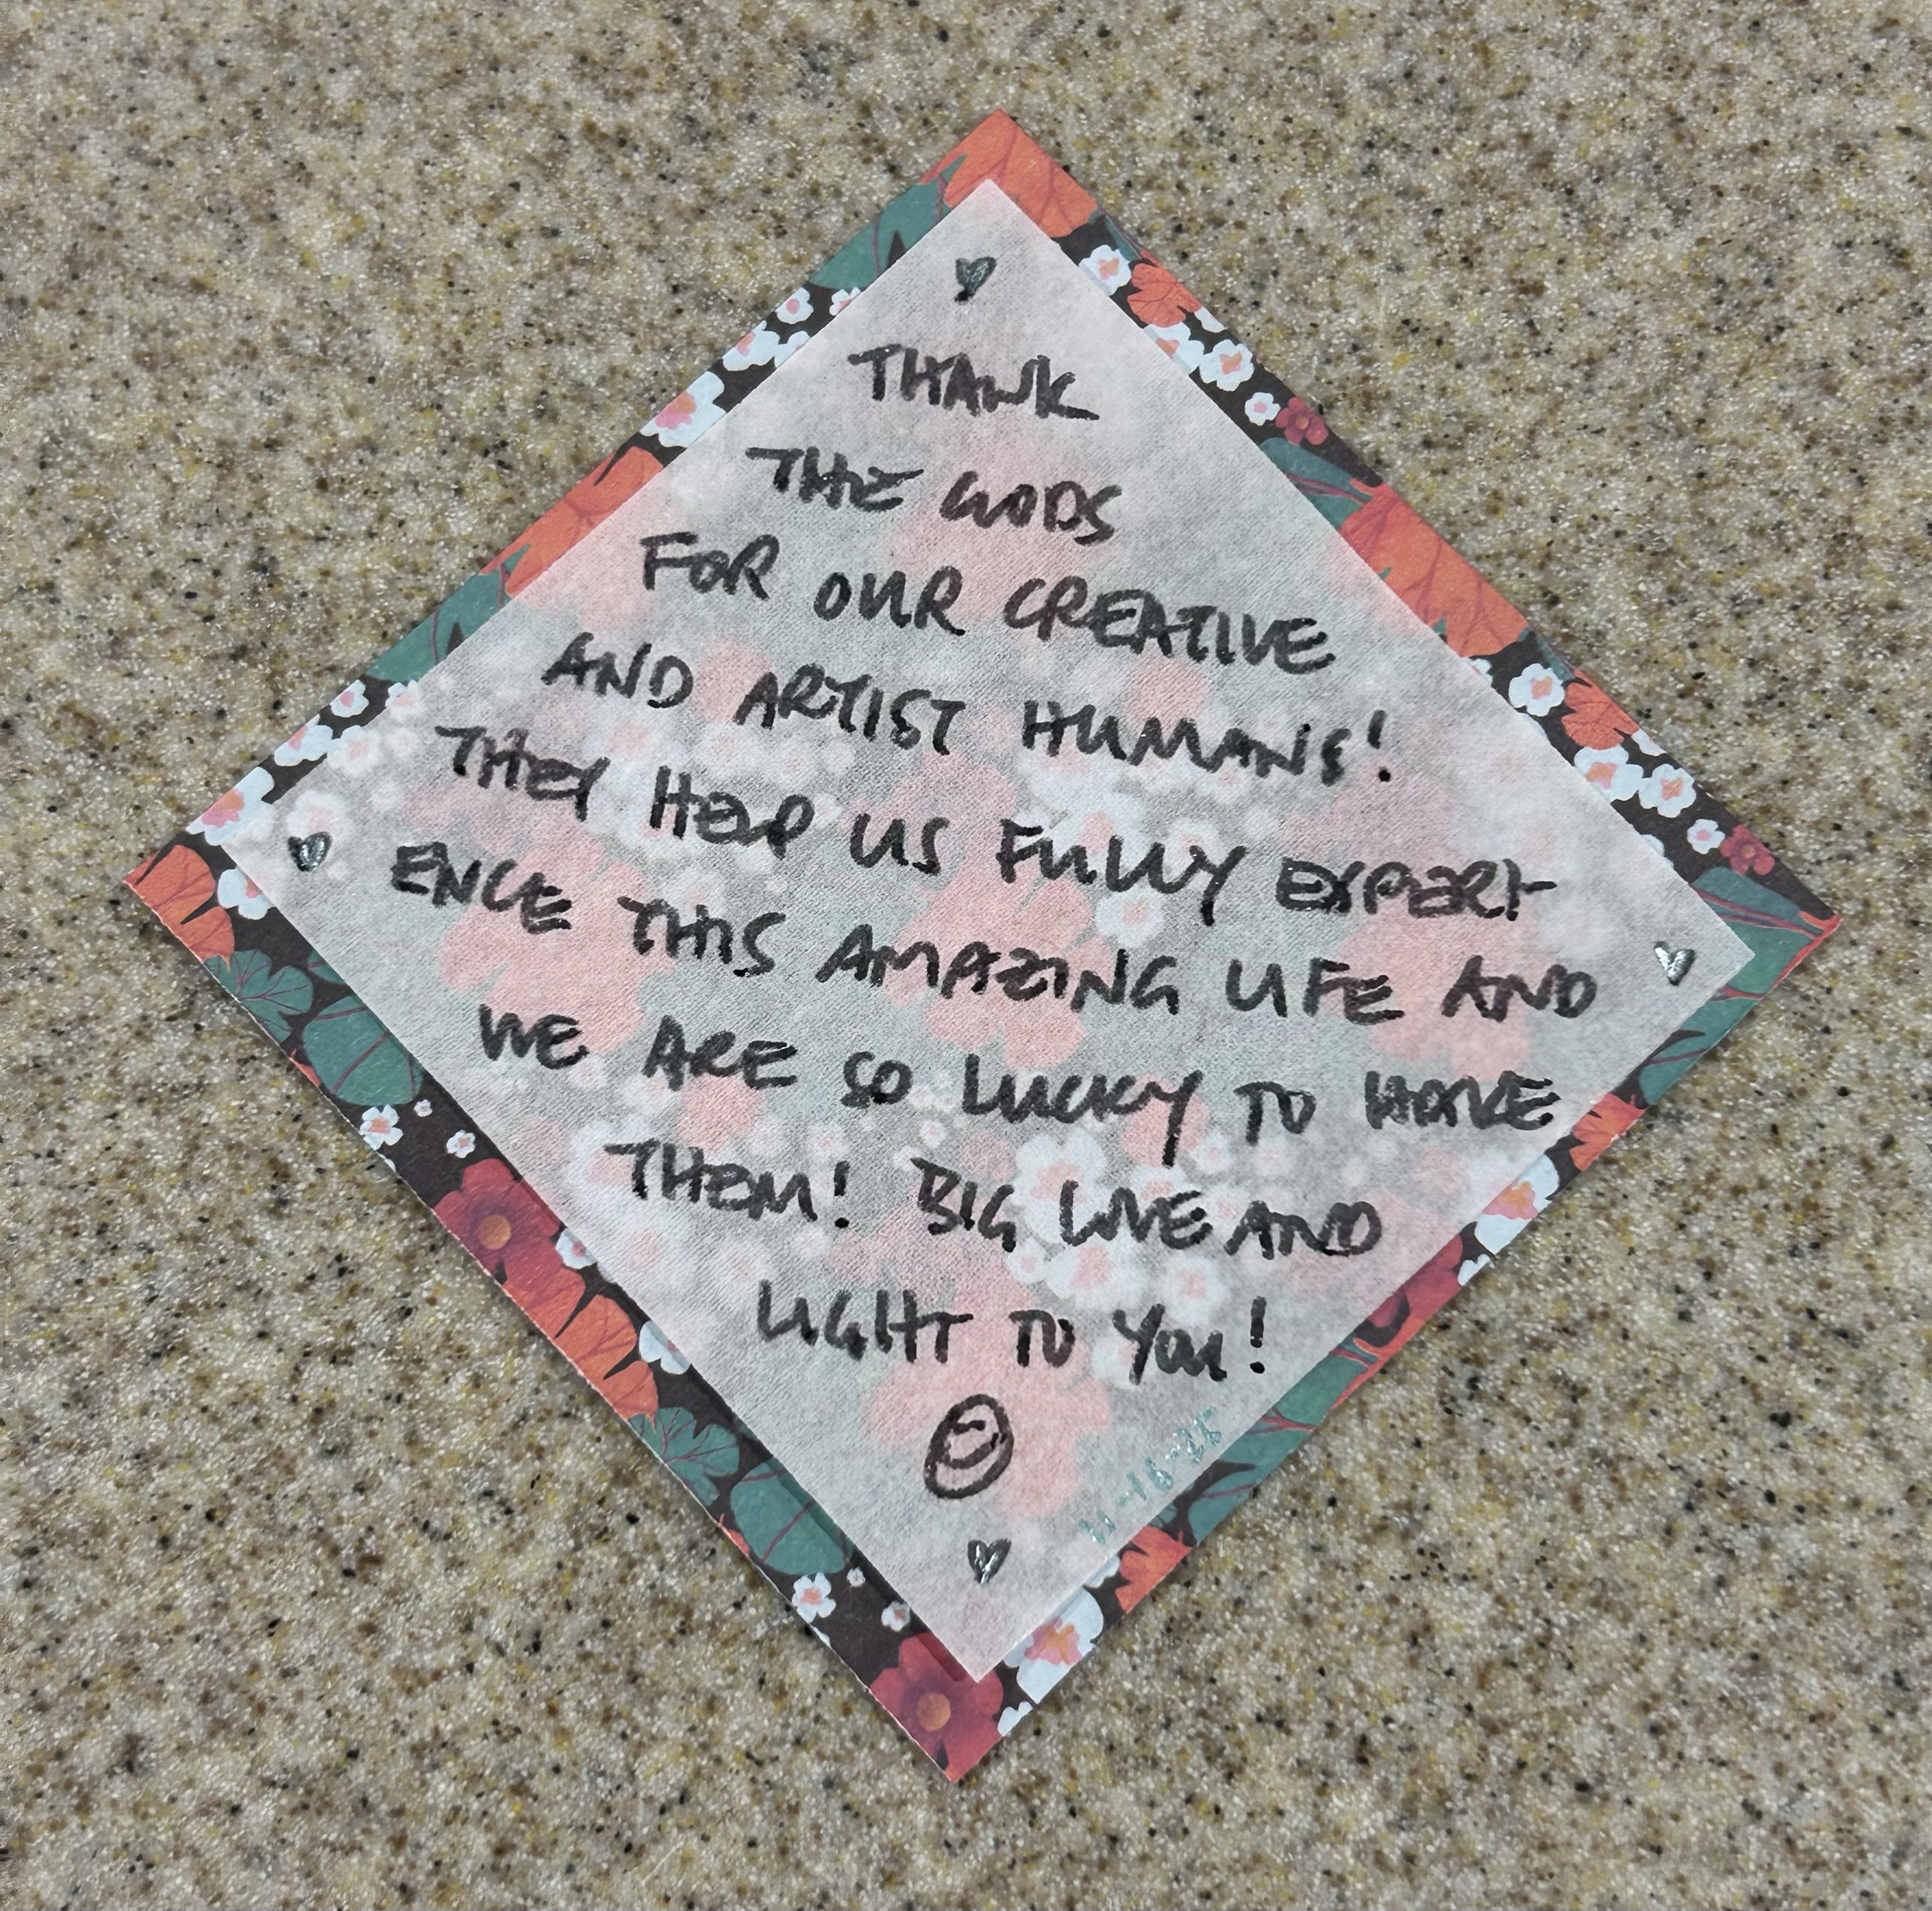 THANK
THE GODS
FOR OUR CREATIVE
AND ARTIST HUMANS!
THEY HELP US FULLY EXPERI-
ENCE THIS AMAZING LIFE AND
WE ARE SO LUCKY TO HAVE
THEM! BIG LOVE AND
LIGHT TO YOU!